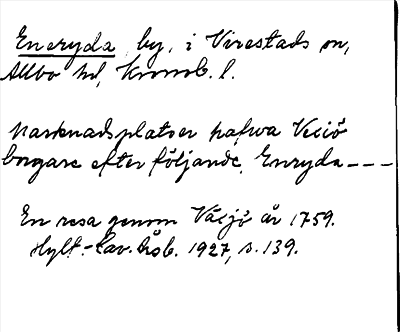 Eneryda by, i Virestads sn,
Allbo hd, Kronob. l.
Marknadsplatser hafwa Wexiö
borgare efter följande. Enryda ---
En resa genom Växjö år 1759.
Hylt.-Cav. årsb. 1927, s. 139.